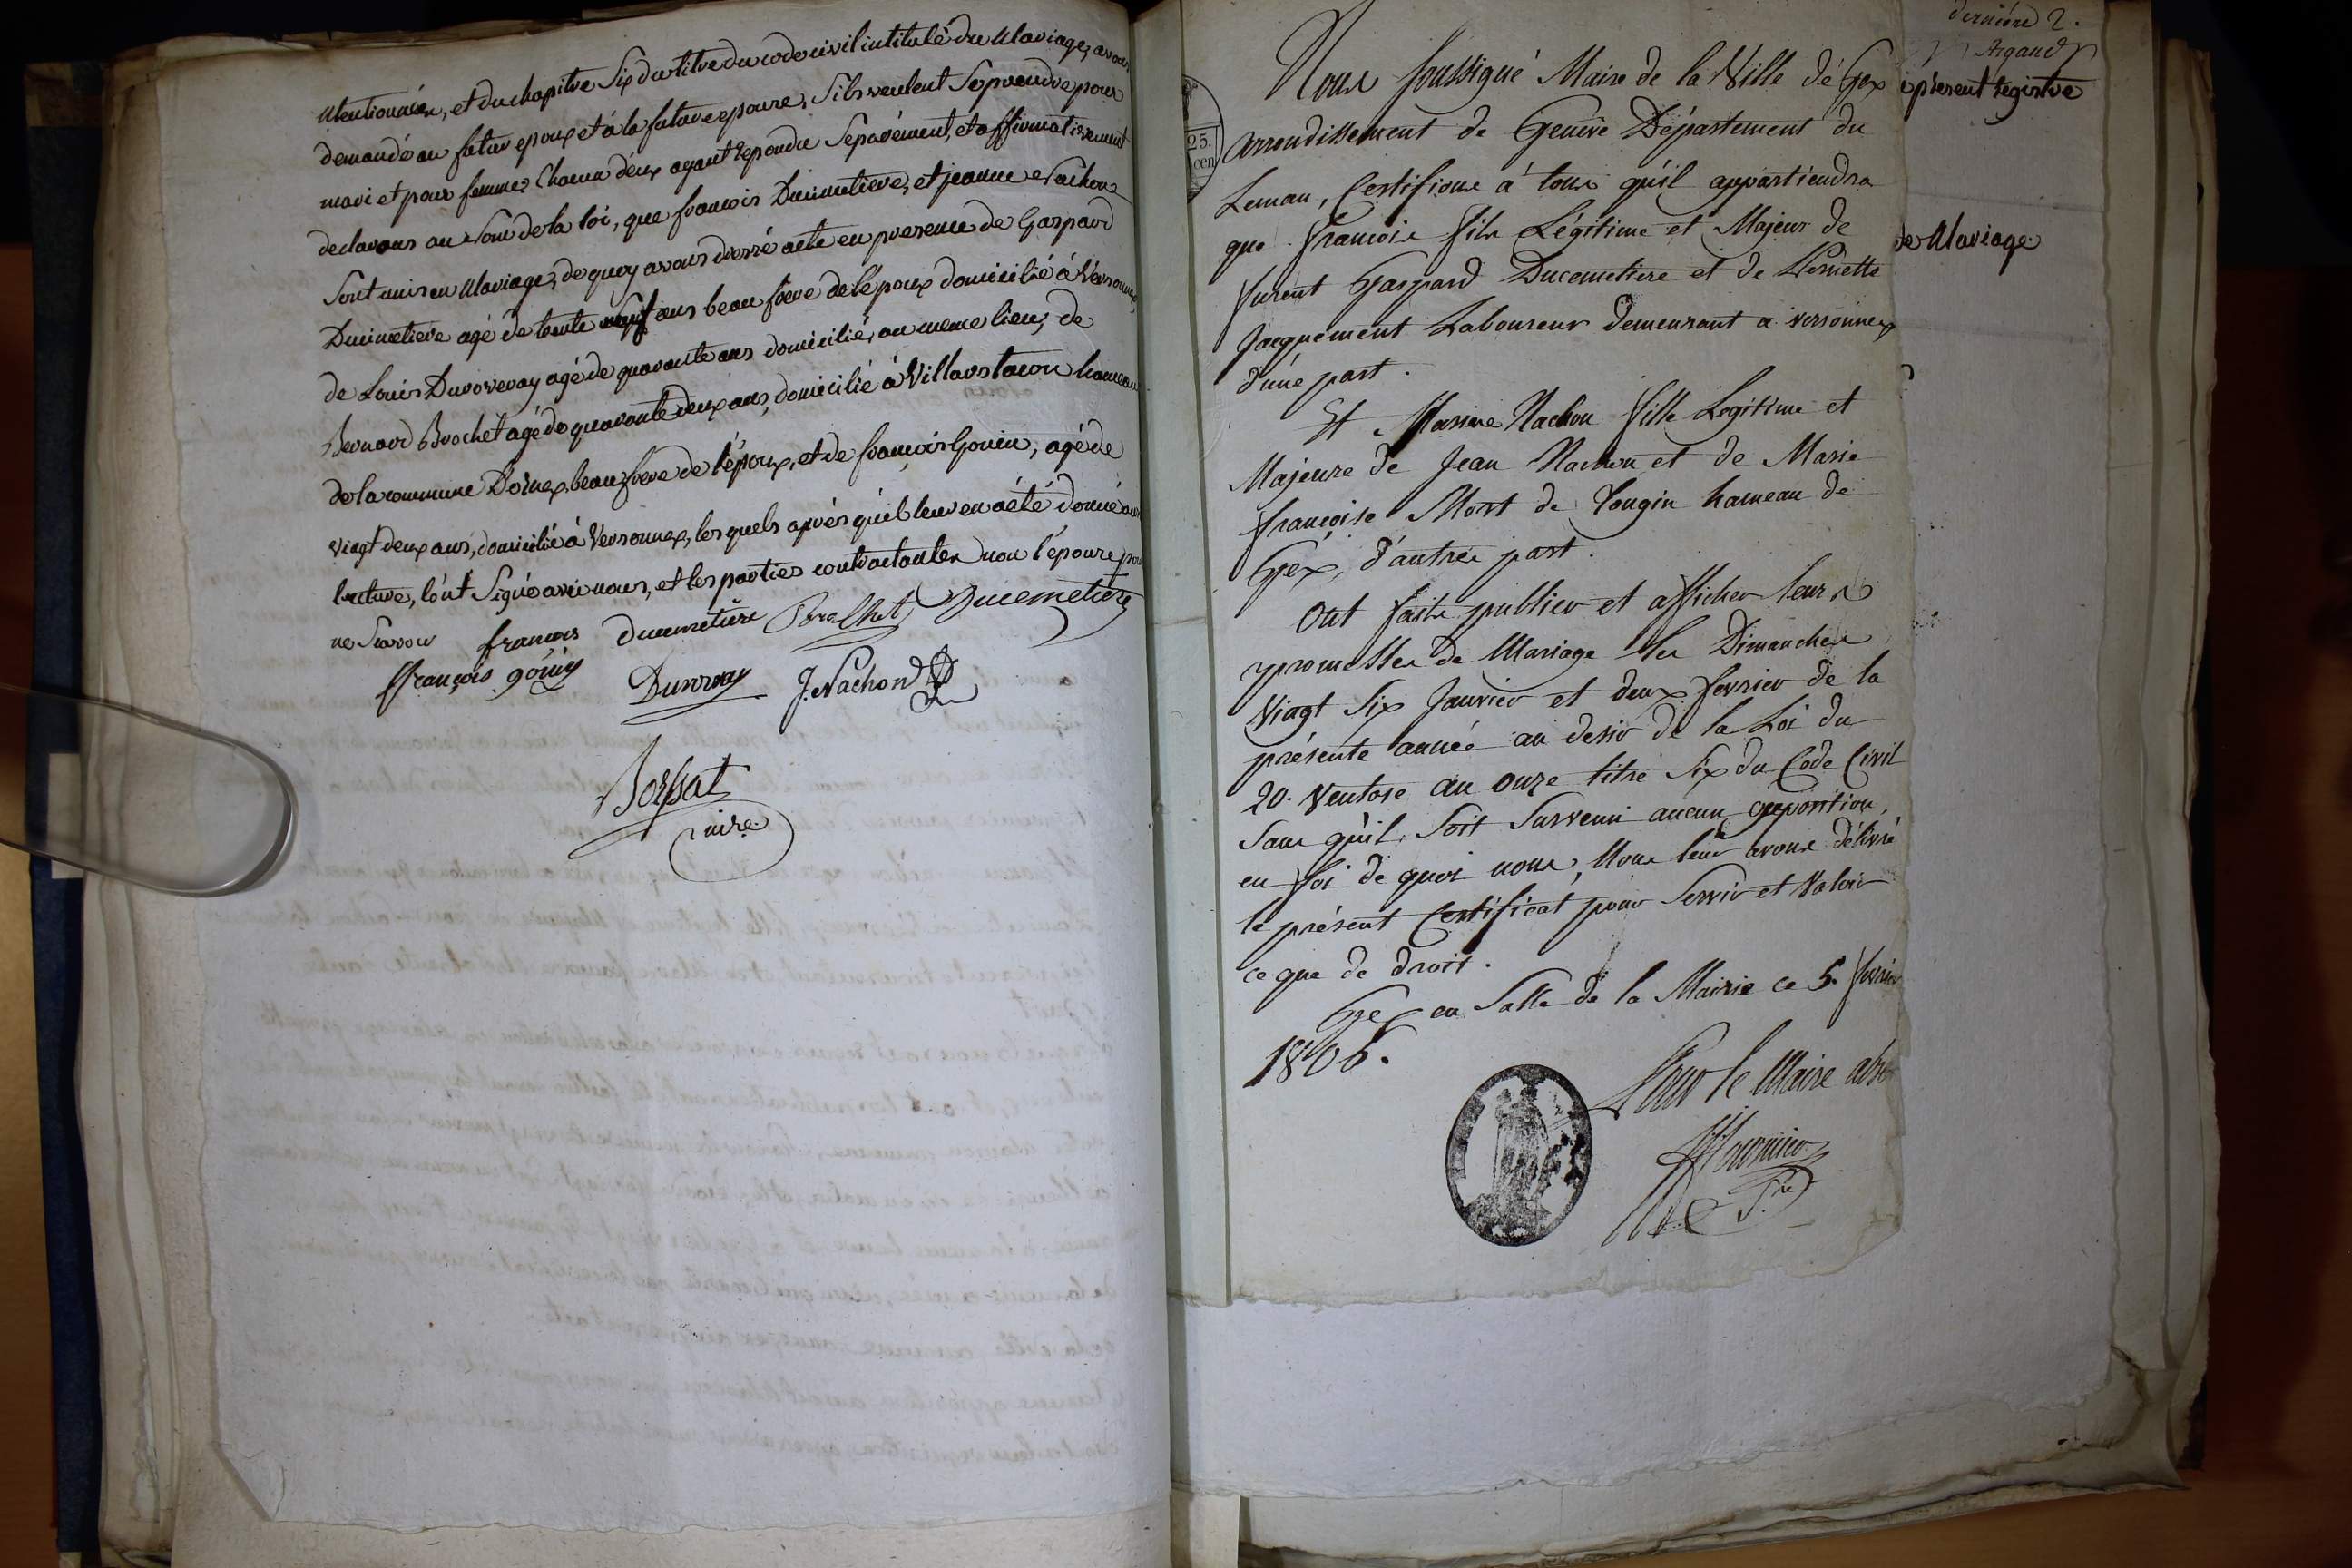 Mentionnées, et du chapitre Six du titre du code civil intitulé du Mariage, avons
demandé au futur epoux et à la future epouse, S'ils veulent Se prendre pour
mari et pour femme; Chacun d'eux ayant repondu Separément, et affirmativement
declarons au Nom de la loi, que françois Ducimetiere, et jeanne Nachon
Sont unis en Mariage, de quoy avons dressé acte en presence de Gaspard
Ducimetiere agé de trente neuf ans beau frere de l'époux domicilié à Versonnex,
de Louis Duvoveray agé de quarante ans domicilié, au meme lieu, de
Bernard Brochet agé de quarante deux ans, domicilié à Villars tacon hameau
de la commune D'ornex, beau frere de l'époux, et de françois Gonin, agé de
vingt deux ans, domicilié à Versonnex, les quels après qu'il leur en a été donné
lecture, l'ont Signé avec nous, et les parties contractantes non l'épouse pour
ne Savoir francois ducemetiere Ducemetiere
françois gonin J. Nachon
Borssat
mire
25.
cen
Nous soussigné Maire de la Ville de Gex
arrondissement de Genève Département du
Leman, Certifions à tous qu'il appartiendra
que francois fils Légitime et Majeur de
furent Gaspard Ducemetiere et de Pernette
Jacquement Laboureur demeurant a versonnex
d'une part.
Et Marine Nachon fille Legitime et
Majeure de Jean Nachon et de Marie
françoise Mort de Tougin hameau de
Gex, d'autre part.
Ont faits publier et afficher leurs
promesses de Mariage les Dimanches
Vingt Six Janvier et deux fevrier de la
présente année au desir de la Loi du
20. Ventose an onze titre Six du Code Civil
Sans qu'il Soit Survenu aucun opposition,
en foi de quoi nous, Nous leur avons délivré
le présent Certificat pour Servir et Valoir
ce que de droit.
Gex en Salle de la Mairie ce 5. fevrier
1806.
Pour le Maire abs
Fournier
derniere 2.
Argand
present registre
de Mariage